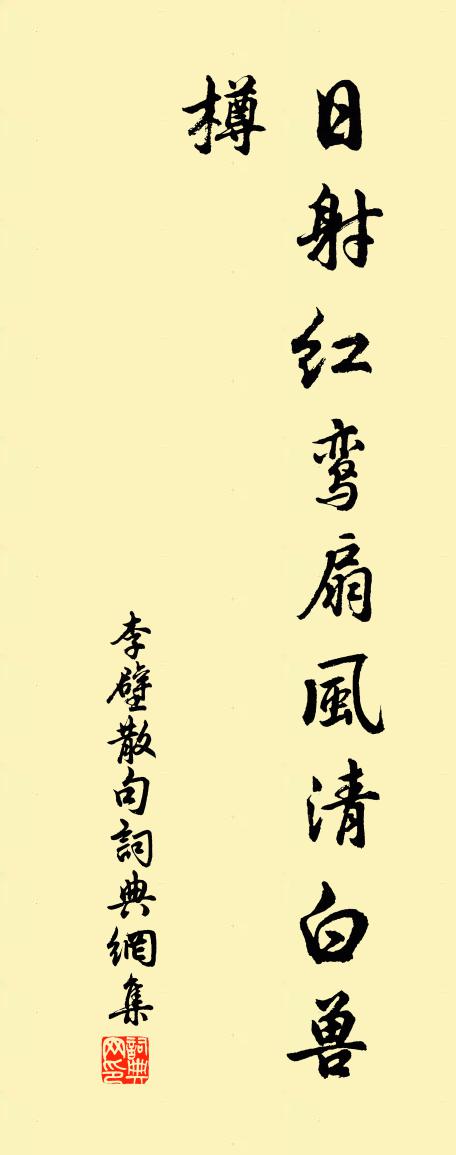 日射红鸾扇風清白兽
樽
李壁散句詞典網集
詞典网印